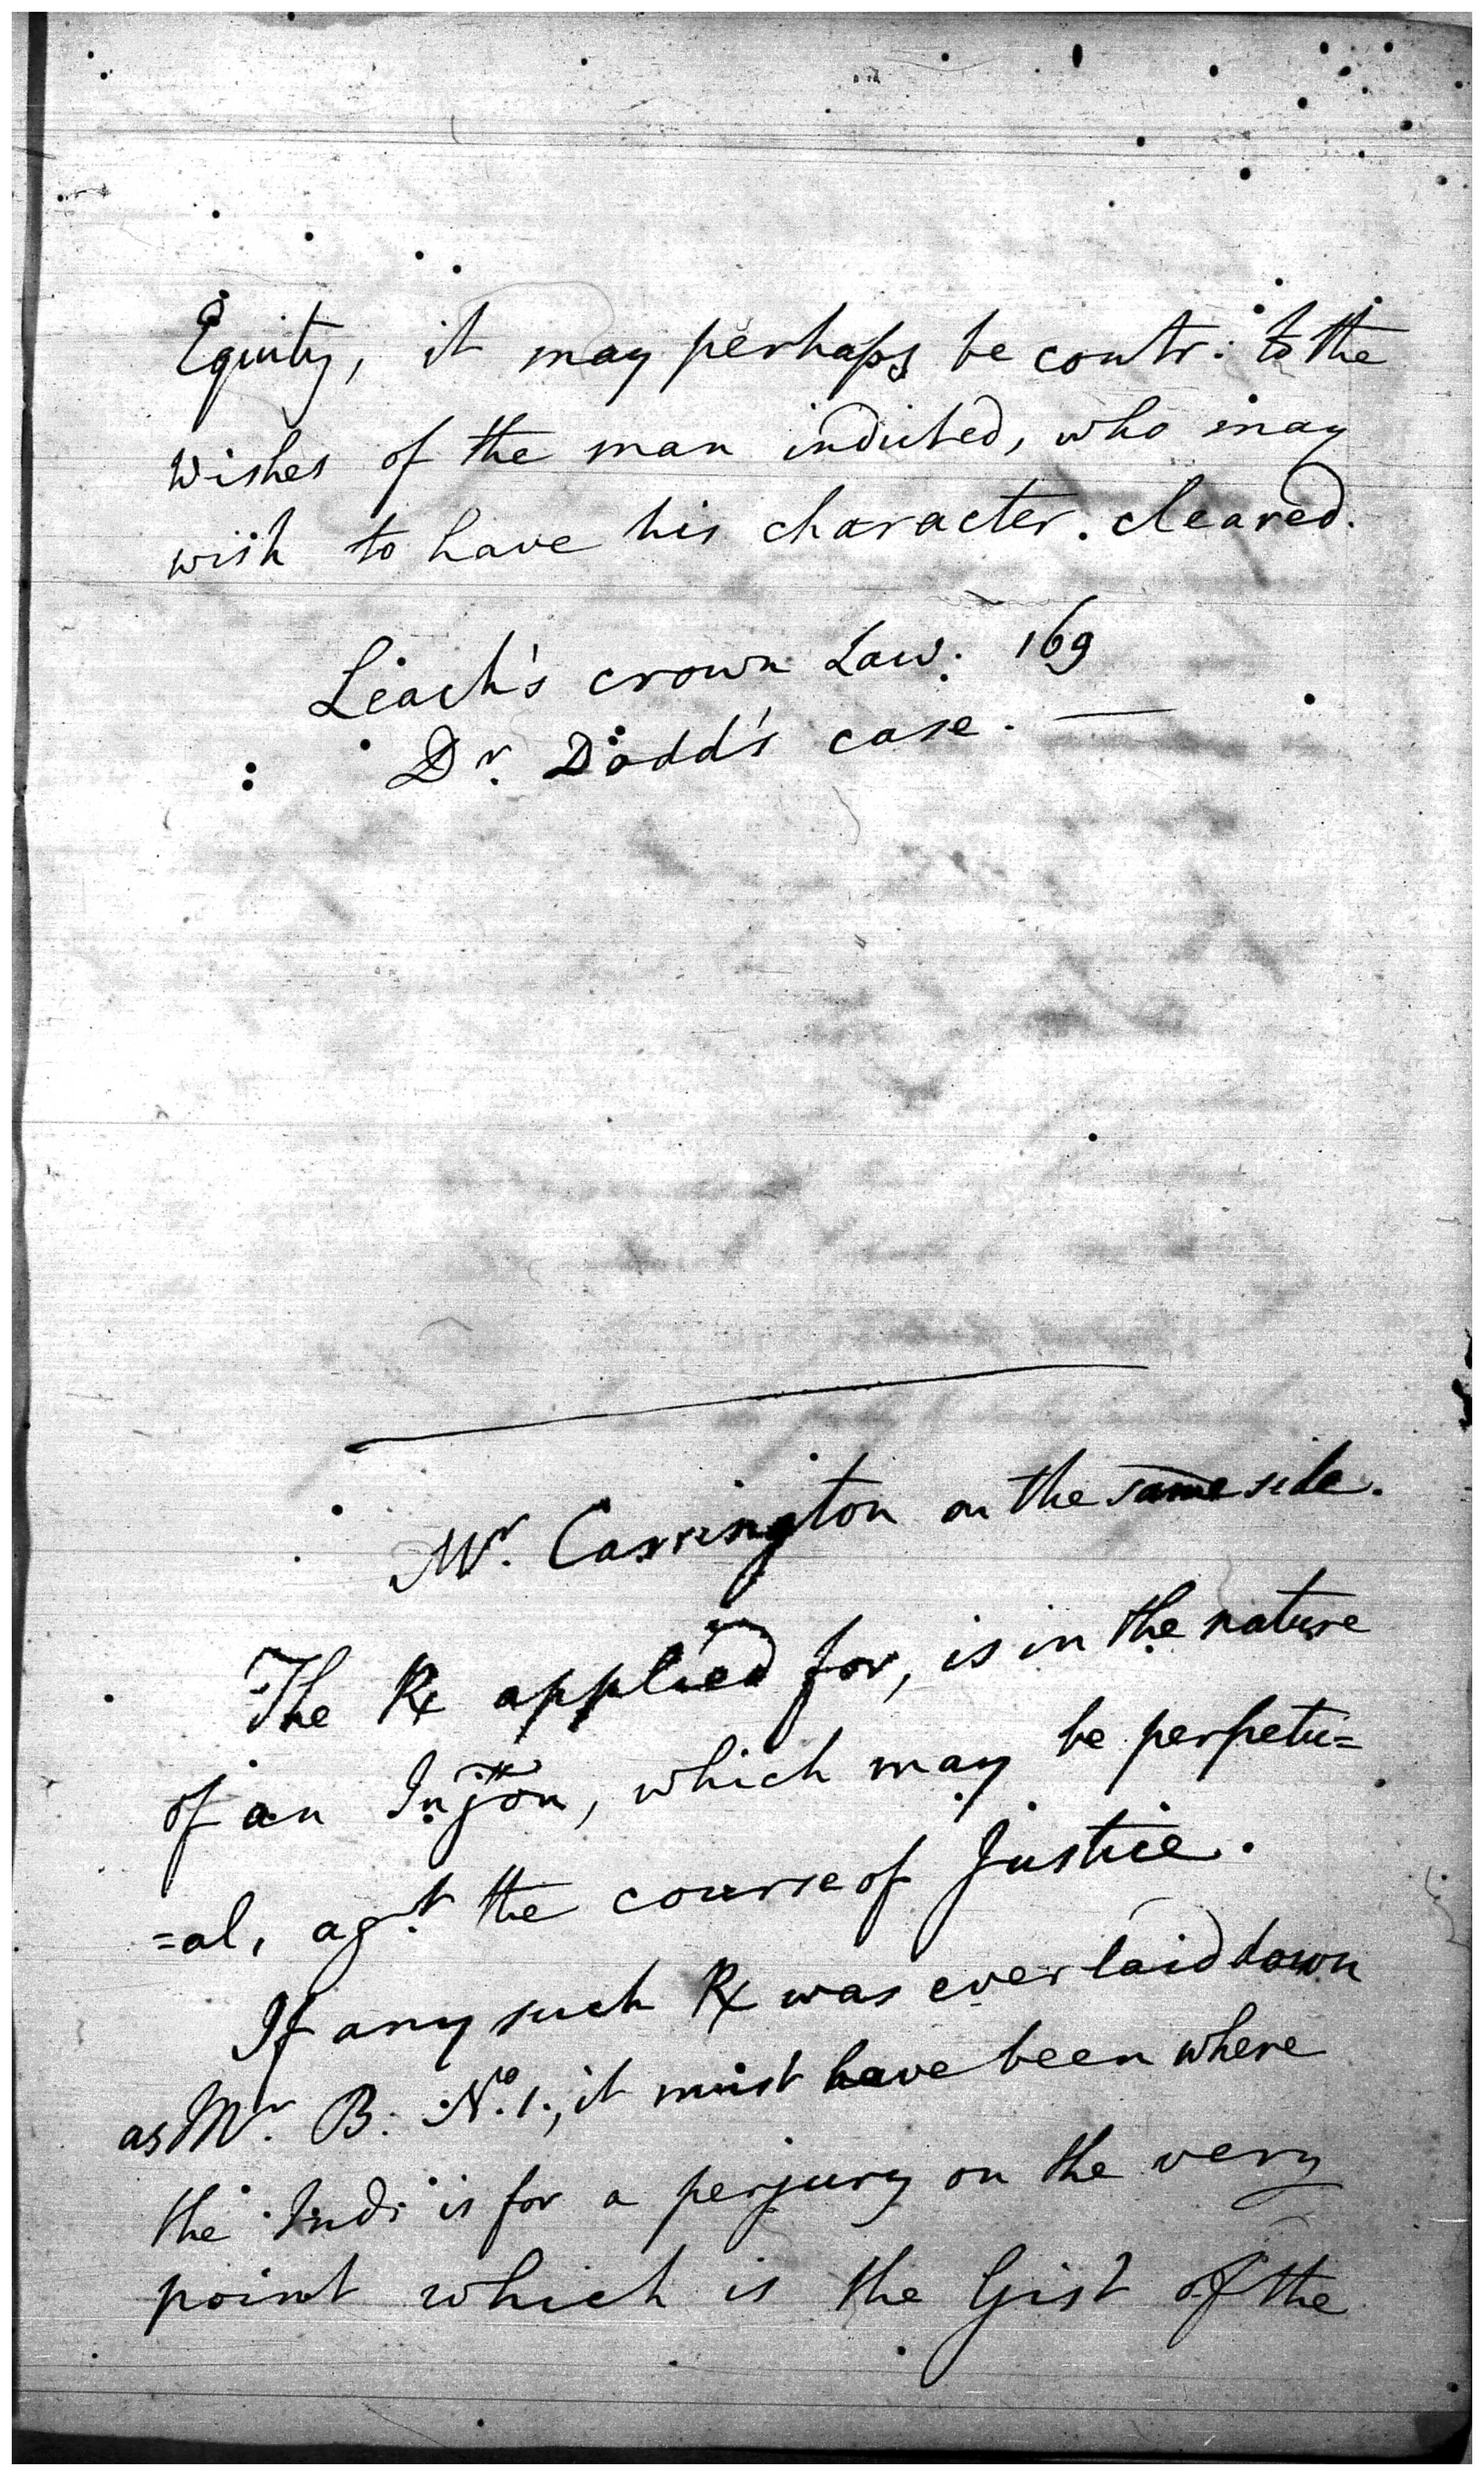 Equity, it may perhaps be contr: to the
wishes of the man indicted, who may
wish to have his character. cleared.
Leach's crown Law. 169
Dr. Dodd's case. —
Mr. Carrington on the same side.
The Rx applied for, is in the nature
of an Injõn, which may be perpetu=
=al, agt the course of Justice.
If any such Rx was ever laid down
as Mr. B. No. 1., it must have been where
the Ind: is for a perjury on the very
point which is the Gist of the